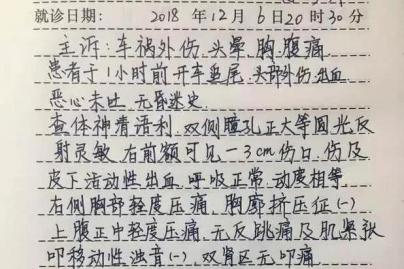 就诊日期: 2018 年12月6日20时30分
主诉:车祸外伤、头晕、胸、腹痛
患者于1小时前开车追尾、头部外伤、出血
恶心未吐、无昏迷史
查体神清语利、双侧瞳孔正大等圆光反
射灵敏、右前额可见一3cm伤口、伤及
皮下活动性出血、呼吸正常、动度相等、
右侧胸部轻度压痛、胸廓挤压征(-)
上腹正中轻度压痛、无反跳痛及肌紧张
叩移动性浊音(-)、双肾区无叩痛